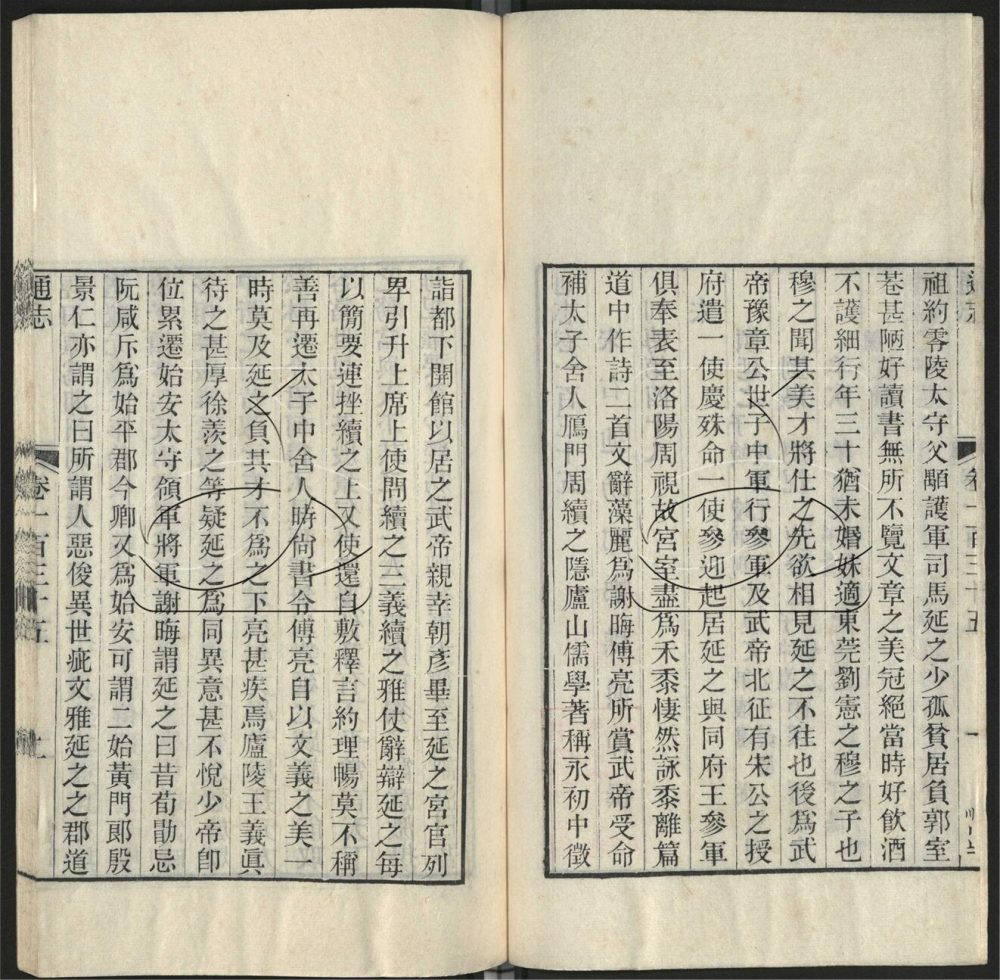 祖約零陵太守父顒護軍司馬延之少孤貧居負郭室
巷甚陋好讀書無所不覽文章之美冠絕當時好飲酒
不護細行年三十猶未婚妹適東莞劉憲之穆之子也
穆之聞其美才將仕之先欲相見延之不往也後爲武
帝豫章公世子中軍行參軍及武帝北征有宋公之授
府遣一使慶殊命一使參迎起居延之與同府王參軍
俱奉表至洛陽周視故宮室盡爲禾黍悽然詠黍離篇
道中作詩二首文辭藻麗爲謝晦傅亮所賞武帝受命
補太子舍人鴈門周續之隱廬山儒學著稱永初中徵
詣都下開館以居之武帝親幸朝彥畢至延之宮官列
卑引升上席上使問續之三義續之雅仗辭辯延之每
以簡要連挫續之上又使還自敷釋言約理暢莫不稱
善再遷太子中舍人時尙書令傅亮自以文義之美一
時莫及延之負其才不爲之下亮甚疾焉廬陵王義眞
待之甚厚徐羨之等疑延之爲同異意甚不悅少帝卽
位累遷始安太守領軍將軍謝晦謂延之曰昔荀勖忌
阮咸斥爲始平郡今卿又爲始安可謂二始黃門郎殷
景仁亦謂之曰所謂人惡俊異世疵文雅延之之郡道
通志
卷一百三十五